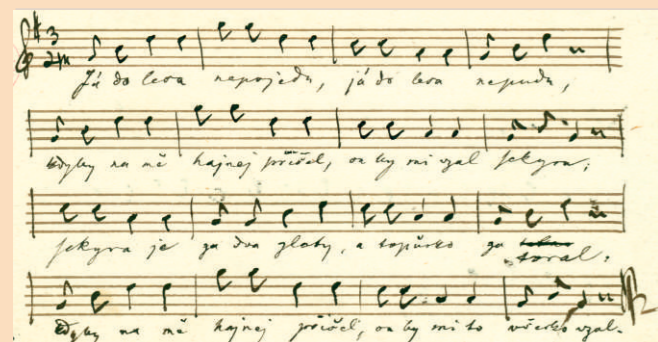 Já do lesa nepojedu, já do lesa nepudu,
kdyby na mě hajnej přišel, on by mi vzal sekyru;
sekyra je za dva zlatý, a topůrko za toral,
kdyby na mě hajnej přišel, on by mi to všecko vzal.